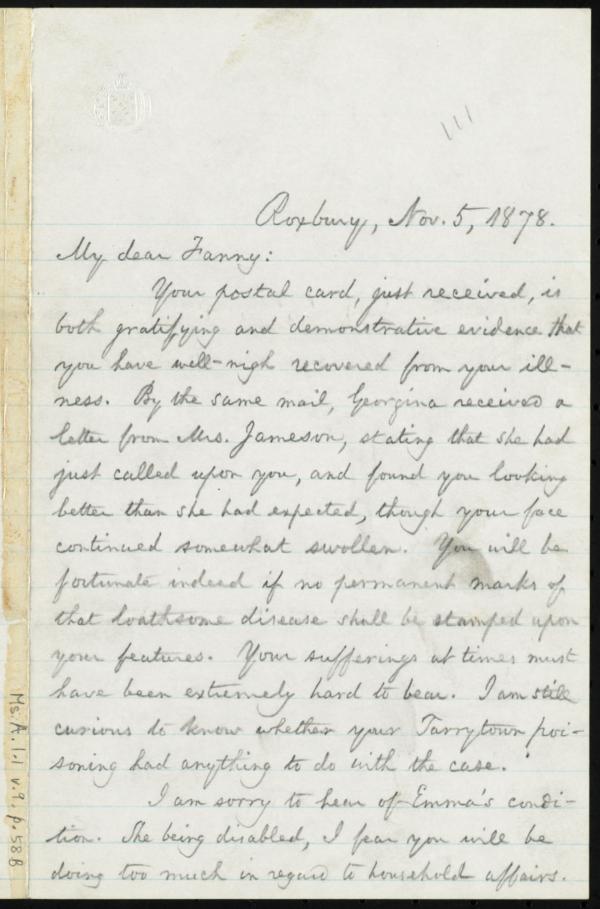 111
Roxbury, Nov. 5, 1878.
My dear Fanny:
Your postal card, just received, is
both gratifying and demonstrative evidence that
you have well-nigh recovered from your ill-
ness. By the same mail, Georgina received a
letter from Mrs. Jameson, stating that she had
just called upon you, and found you looking
better than she had expected, though your face
continued somewhat swollen. You will be
fortunate indeed if no permanent marks of
that loathsome disease shall be stamped upon
your features. Your sufferings at times must
have been extremely hard to bear. I am still
curious to know whether your Tarrytown poi-
soning had anything to do with the case.
I am sorry to hear of Emma's condi-
tion. She being disabled, I fear you will be
doing too much in regard to household affairs.
Ms. A. 1.1 v. 9, p. 58B